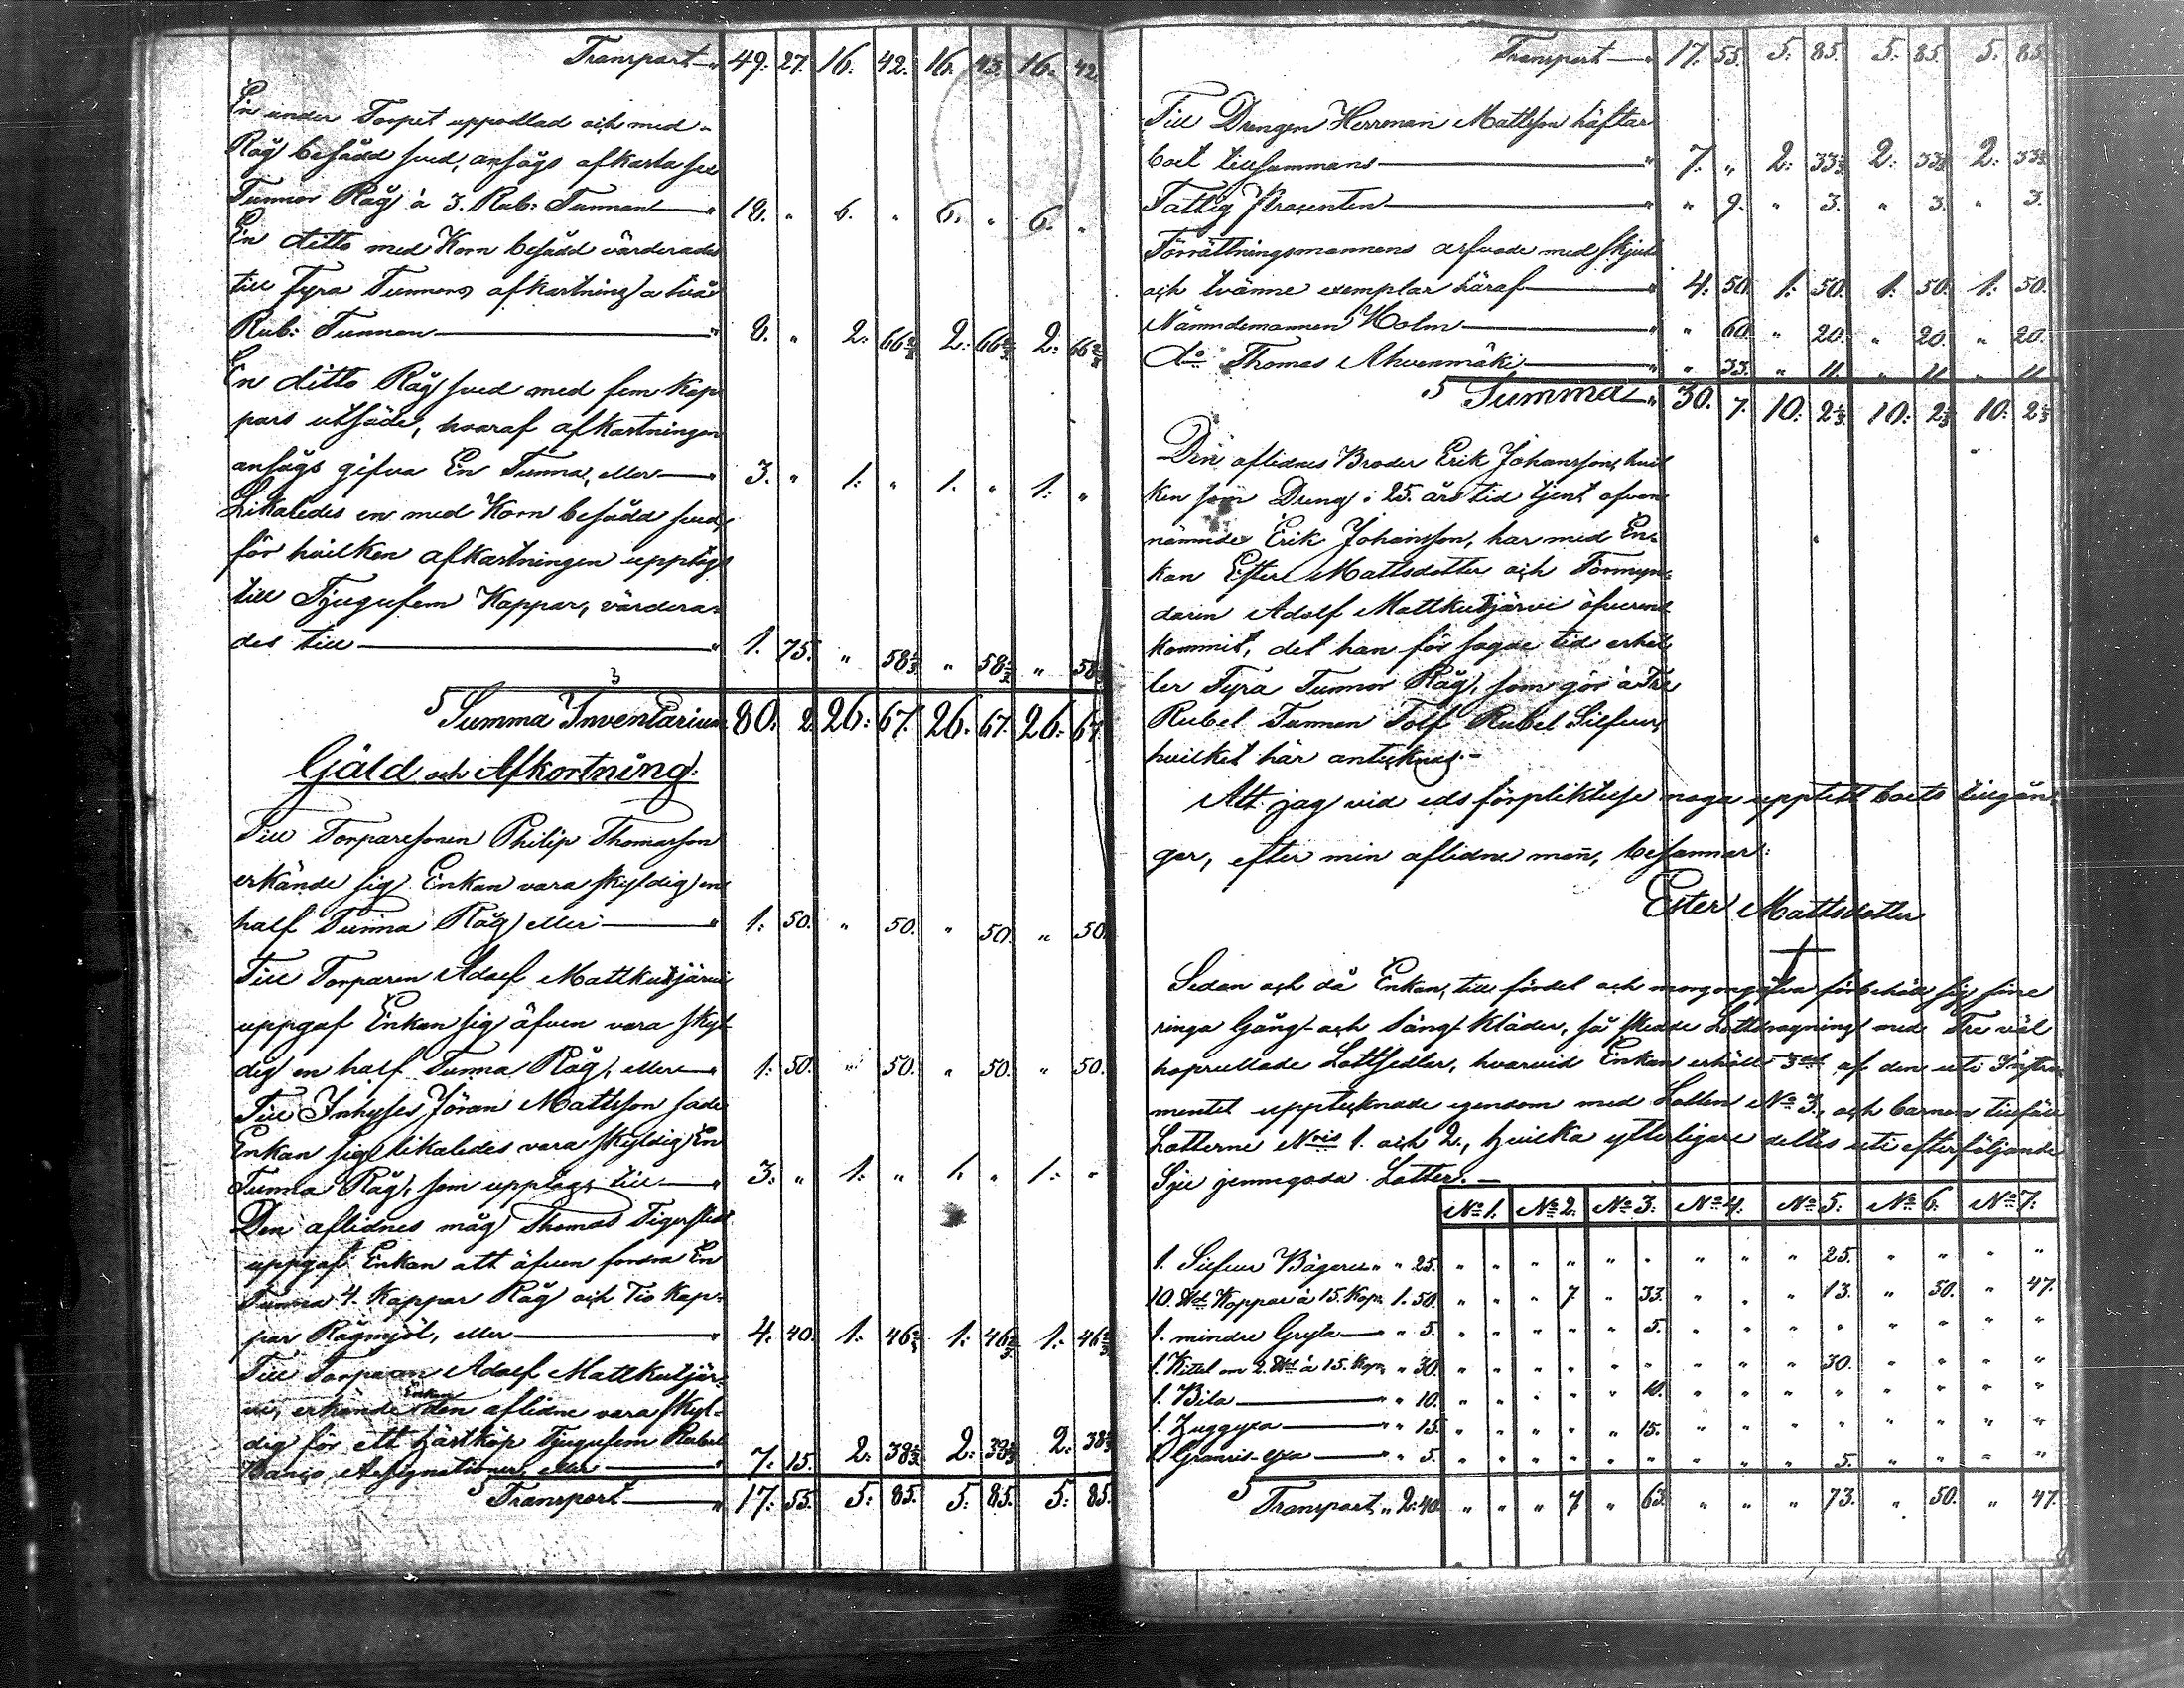 Transport — " 49. 27. 16. 42. 16. 43. 16. 42.
En under Torpet uppodlad och med
Råg besådd sved, ansågs afkasta sex
Tunnor Råg à 3. Rub: Tunnan — " 18. " 6. " 6. " 6. "
En ditto med Korn besådd värderades
till Fyra Tunnors afkastning a två
Rub: Tunnan — " 8. " 2. 66⅔ 2. 66⅔ 2. 66⅔
En ditto Råg sved med fem Kap
pars utsäde, hvaraf afkastningen
ansågs gifva En Tunna, eller — " 3. " 1. " 1. " 1. "
Likaledes en med Korn besådd sved,
för hvilken afkastningen upptogs
till Tjugufem Kappar, värdera-
des till — " 1. 75. " 58⅓ " 58⅓ " 58⅓
Summa Inventarium 80. 2. 26. 67. 26. 67. 26. 67.
Gäld och Afkortning:
Till Torparesonen Philip Thomasson
erkände sig Enkan vara skyldig en
half Tunna Råg eller — " 1. 50. " 50. " 50. " 50.
Till Torparen Adolf Mattkutjärvi
uppgaf Enkan sig äfven vara skyl-
dig en half Tunna Råg, eller — " 1. 50. " 50. " 50. " 50.
Till Inhyses Jöran Mattsson sade
Enkan sig likaledes vara skyldig En
Tunna Råg, som upptogs till — " 3. " 1. " 1. " 1. "
Den aflidnes måg Thomas Tigerstedt
uppgaf Enkan att äfven fordra En
Tunna 4. Kappar Råg och Tio Kap-
par Rågmjöl, eller — " 4. 40. 1. 46⅔ 1. 46⅔ 1. 46⅔
Till Torparen Adolf Mattkutjär-
vi, erkände Enkan den aflidne vara skyl-
dig för ett hästköp Tjugufem Rubel
Banco Assignationer, eller — " 7. 15. 2. 38⅓ 2. 38⅓ 2. 38⅓
Transport — " 17. 55. 5. 85. 5. 85. 5. 85.
Transport — " 17. 55. 5. 85. 5. 85. 5. 85.
Till Drengen Herrman Mattsson häftar
boet tillsammans — " 7. " 2. 33⅓ 2. 33⅓ 2. 33⅓
Fattig Procenten — " " 9. " 3. " 3. " 3.
Förrättningsmannens arfvode med skjuts
och tvänne exemplar häraf — " 4. 50. 1. 50. 1. 50. 1. 50.
Nämndemannen Holm — " " 60. " 20. " 20. " 20.
do Thomas Ahvenmäki — " " 33. " 11. " 11. " 11.
Summa — " 30. 7. 10. 2⅓ 10. 2⅓ 10. 2⅓
Den aflidnes Broder Erik Johansson, hvil
ken som Dreng i 25. års tid tjent ofvan
nämnde Erik Johansson, har med En-
kan Ester Mattsdotter och Förmyn-
daren Adolf Mattkutjärvi öfverens
kommit, det han för sagde tid erhål
ler Fyra Tunnor Råg, som gör à Tre
Rubel Tunnan Tolf Rubel Silfver,
hvilket här antecknas. -
Att jag vid eds förpliktelse noga upptett boets tillgån
gar, efter min aflidne man, besannar:
Ester Mattsdotter
Sedan och då Enkan, till fördel och morgongåfva förbehåll sig sine
ringa Gång- och Säng-Kläder, så skedde Lottdragning med Tre väl
hoprullade Lottsedlar, hvarvid Enkan erhöll 3del af den uti Instru-
mentet upptecknade egendom med Lotten No 3. och barnen tillföll
Lotterne Nris 1. och 2., hvilka ytterligare deltes uti efterföljande
Sju jemngoda Lotter. —
No 1. No 2. No 3. No 4. No 5. No 6. No 7.
1. Silfver Bägare " " 25. " " " " " " " " " 25. " " " "
10. Koppar à 15. Kop. 1. 50. " " " 7 " 33. " " " 13. " 50. " 47.
1. mindre Gryta — " " 5. " " " " " 5. " " " " " " " "
1. Kittel om 2. à 15. Kop. " 30. " " " " " " " " " 30. " " " "
1. Bila — " " 10. " " " " " 10. " " " " " " " "
1. Huggyxa — " " 15. " " " " " 15. " " " " " " " "
1 Granris-yxa — " " 5. " " " " " " " " " 5. " " " "
Transport " 2. 40. " " " 7 " 63. " " " 73. " 50. " 47.